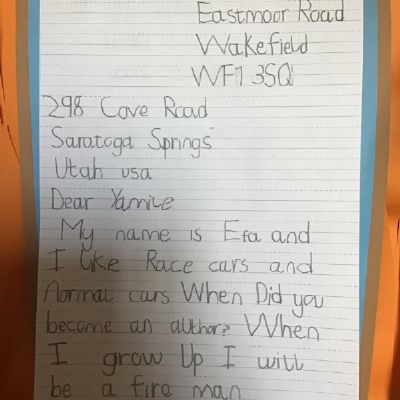 Eastmoor Road
Wakefield
WF1 3SQ
298 Cove Road
Saratoga Springs
Utah usa
Dear Yamile
My name is Efa and
I like Race cars and
normal cars When Did you
become an author? When
I grow Up I will
be a fire man